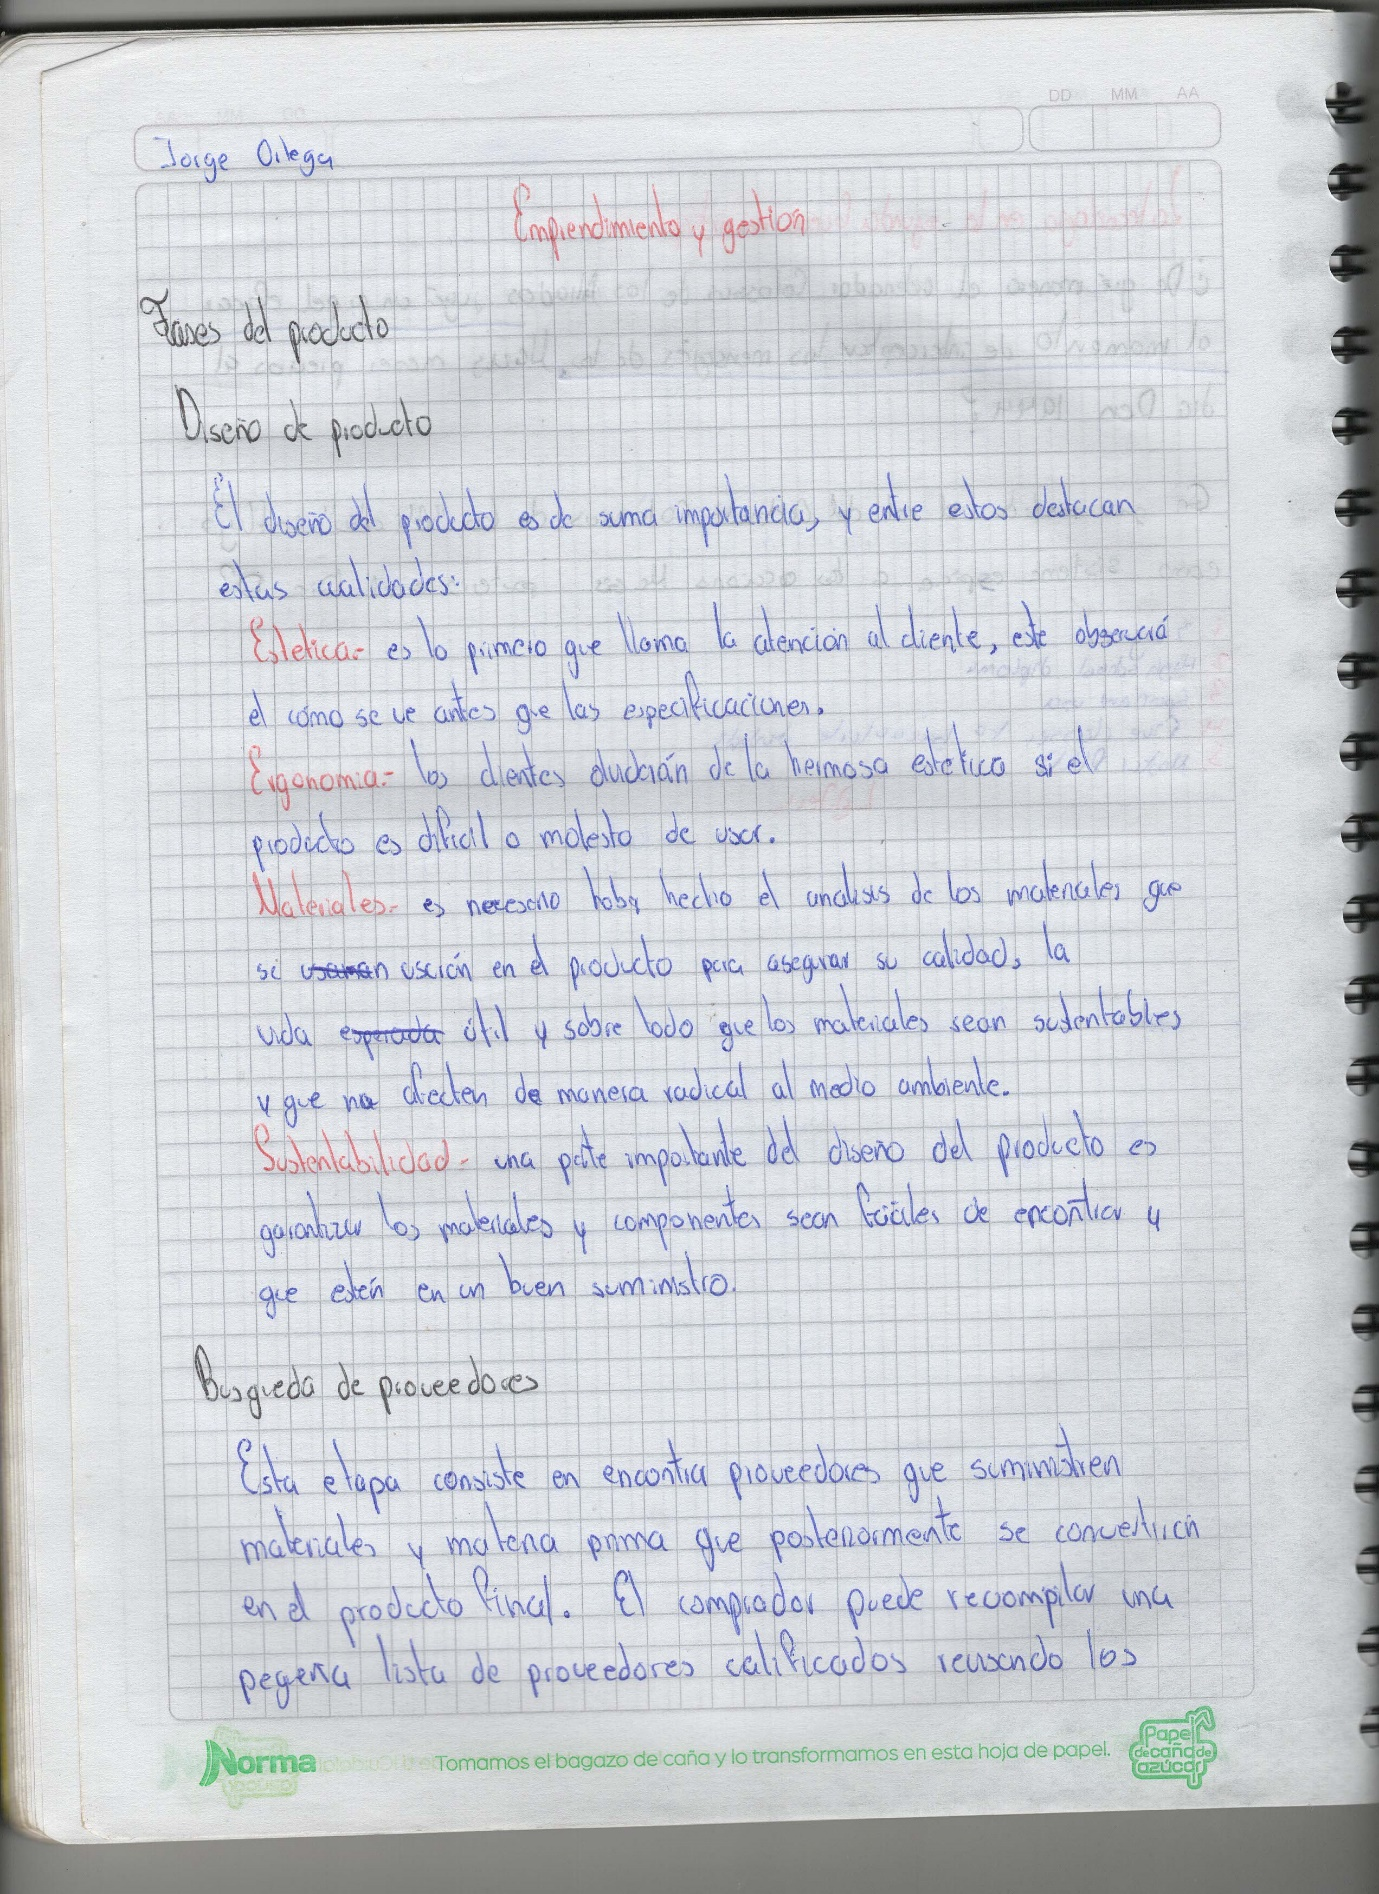 DD MM AA
Jorge Ortega
Emprendimiento y gestion
Fases del producto
Diseño de producto
El diseño del producto es de suma importancia, y entre estos destacan
estas cualidades:
Estetica.- es lo primero que llama la atención al cliente, este observará
el cómo se ve antes que las especificaciones.
Ergonomia.- los clientes dudarán de la hermosa estetica si el
producto es dificil o molesto de usar.
Materiales.- es necesario haber hecho el analisis de los materiales que
se usaran usarán en el producto para asegurar su calidad, la
vida esperada útil y sobre todo que los materiales sean sustentables
y que no afecten de manera radical al medio ambiente.
Sustentabilidad.- una parte importante del diseño del producto es
garantizar los materiales y componentes sean fáciles de encontrar y
que estén en un buen suministro.
Busqueda de proveedores
Esta etapa consiste en encontrar proveedores que suministren
materiales y materia prima que posteriormente se convertirán
en el producto final. El comprador puede recompilar una
pequeña lista de proveedores calificados revisando los
Norma
Tomamos el bagazo de caña y lo transformamos en esta hoja de papel.
Papel
de caña de
azúcar